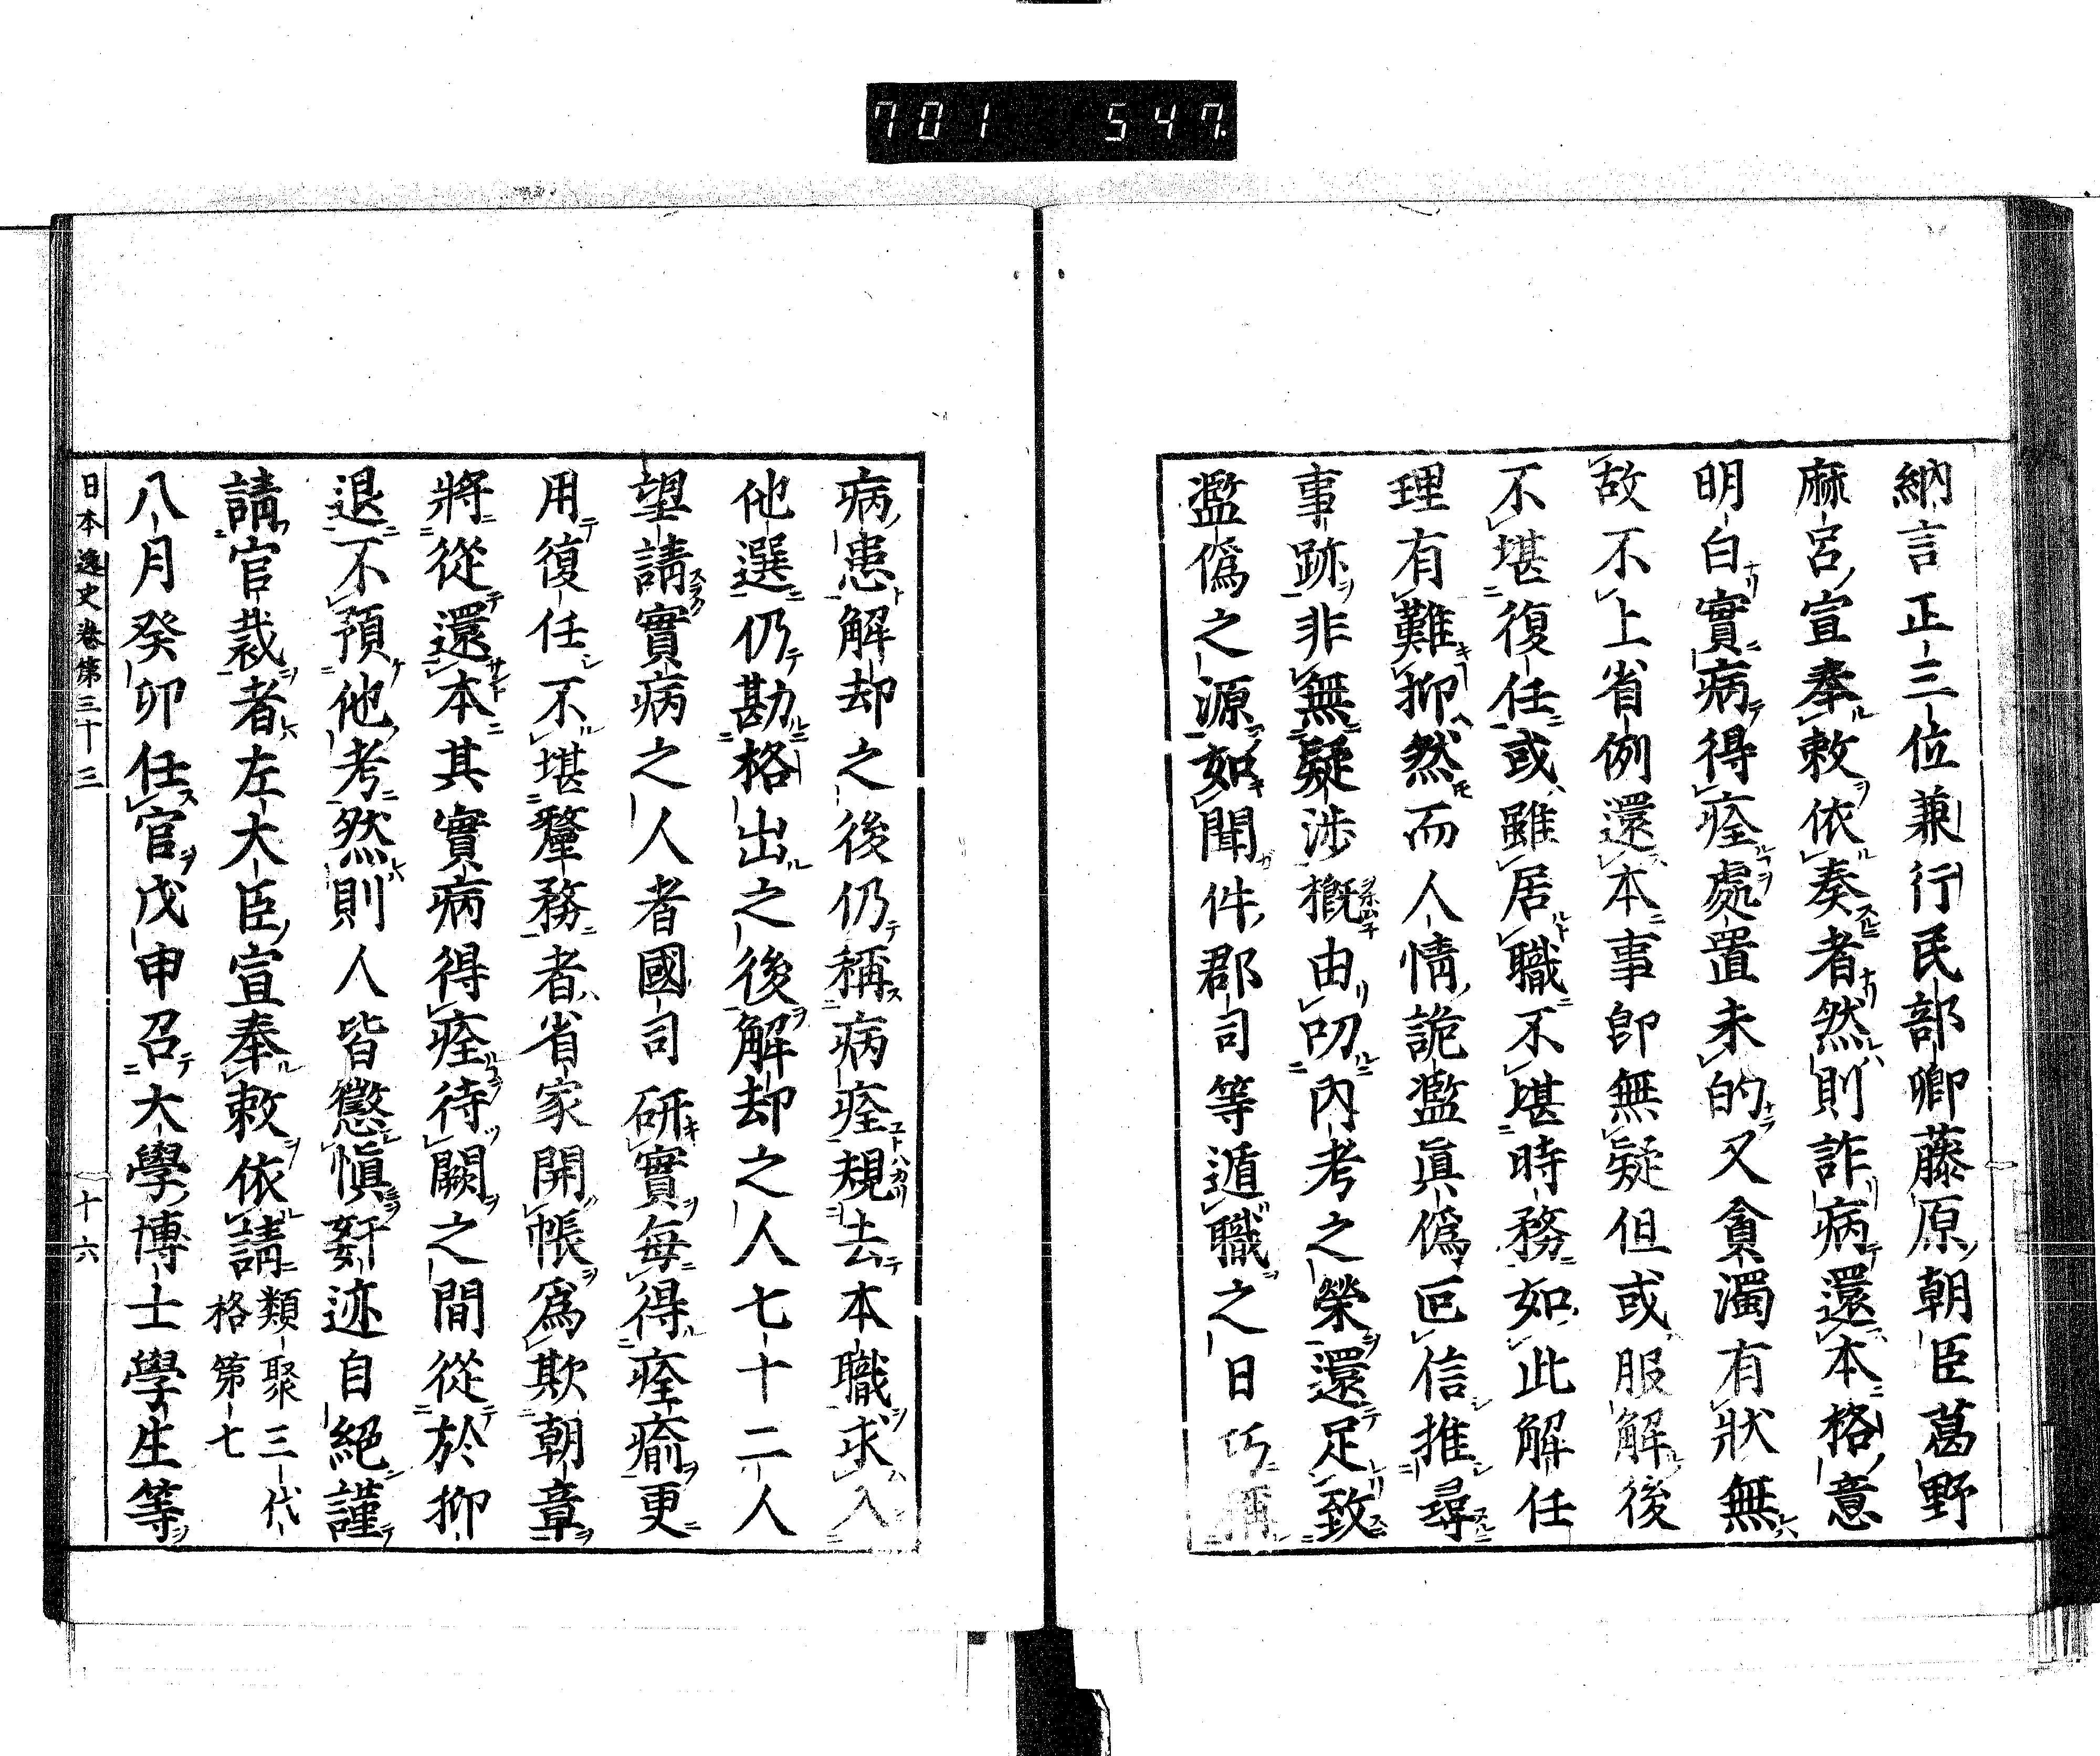 701 547
納言正三位兼行民部卿藤原朝臣葛野
麻呂宣奉敕依奏者然則詐病還本格意
明白實病得痊處置未的又貪濁有狀無
故不上省例還本事卽無疑但或服解後
不堪復任或雖居職不堪時務如此解任
理有難抑然而人情詭濫眞僞叵信推尋
事跡非無疑涉摡由叨內考之榮還足致
濫僞之源如聞件郡司等遁職之日巧稱
病患解却之後仍稱病痊規去本職求入
他選仍勘格出之後解却之人七十二人
望請實病之人者國司研實每得痊瘉更
用復任不堪釐務者省家開帳爲欺朝章
將從還本其實病得痊待闕之間從於抑
退不預他考然則人皆懲愼姧迹自絕謹
請官裁者左大臣宣奉敕依請類聚三代
格第七
八月癸卯任官戊申召大學博士學生等
日本逸史卷第三十三 十六